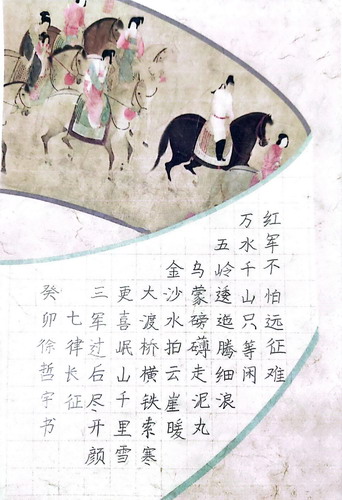 红军不怕远征难
万水千山只等闲
五岭逶迤腾细浪
乌蒙磅礴走泥丸
金沙水拍云崖暖
大渡桥横铁索寒
更喜岷山千里雪
三军过后尽开颜
七律长征
癸卯徐哲宇书